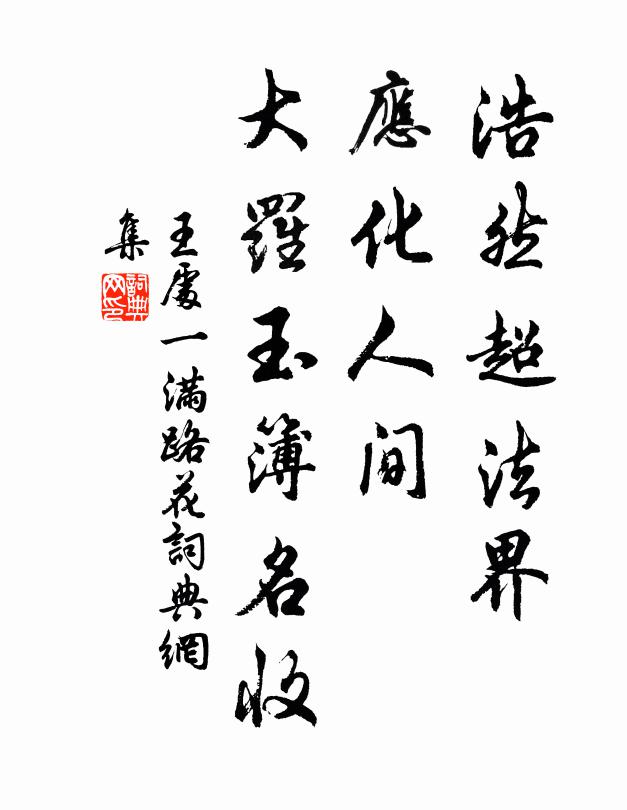 浩然超法界
應化人間
大羅玉簿名收
王處一滿路花詞典網
集
詞典
网印